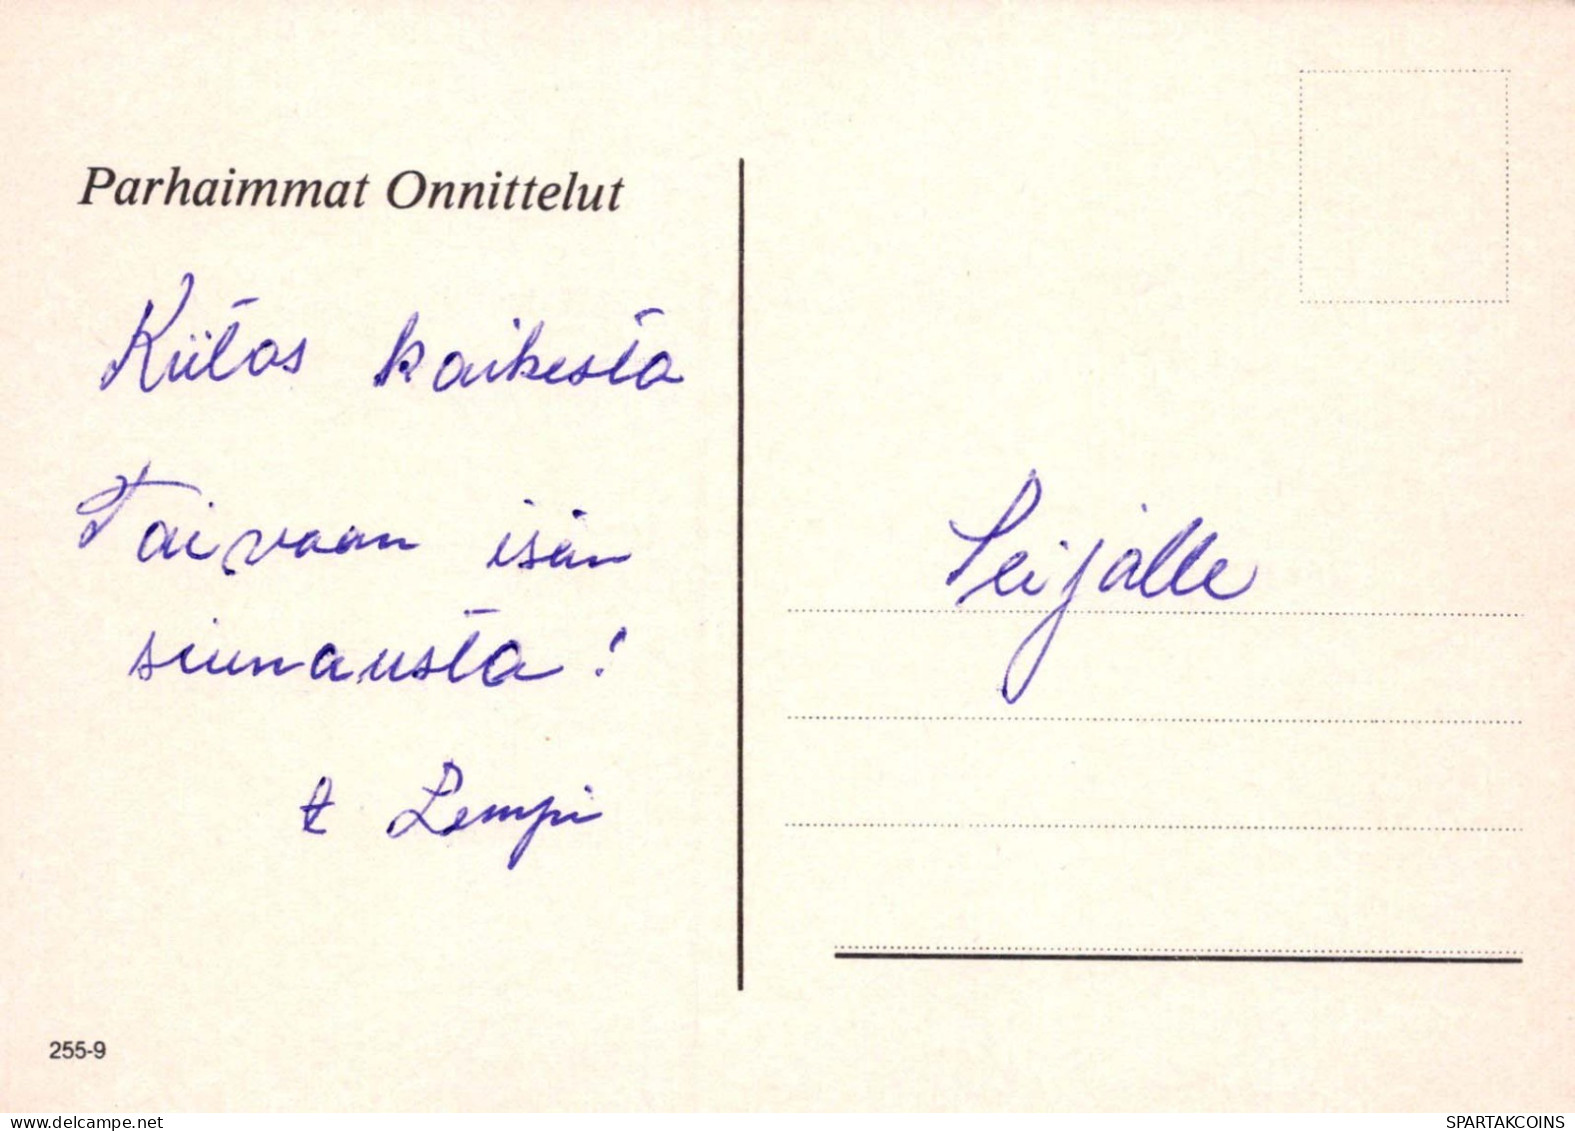 Parhaimmat Onnittelut
Kiitos kaikesta
Taivaan isän
siunausta!
t Lempi
Seijalle
255-9
delcampe.net
SPARTAKCOINS